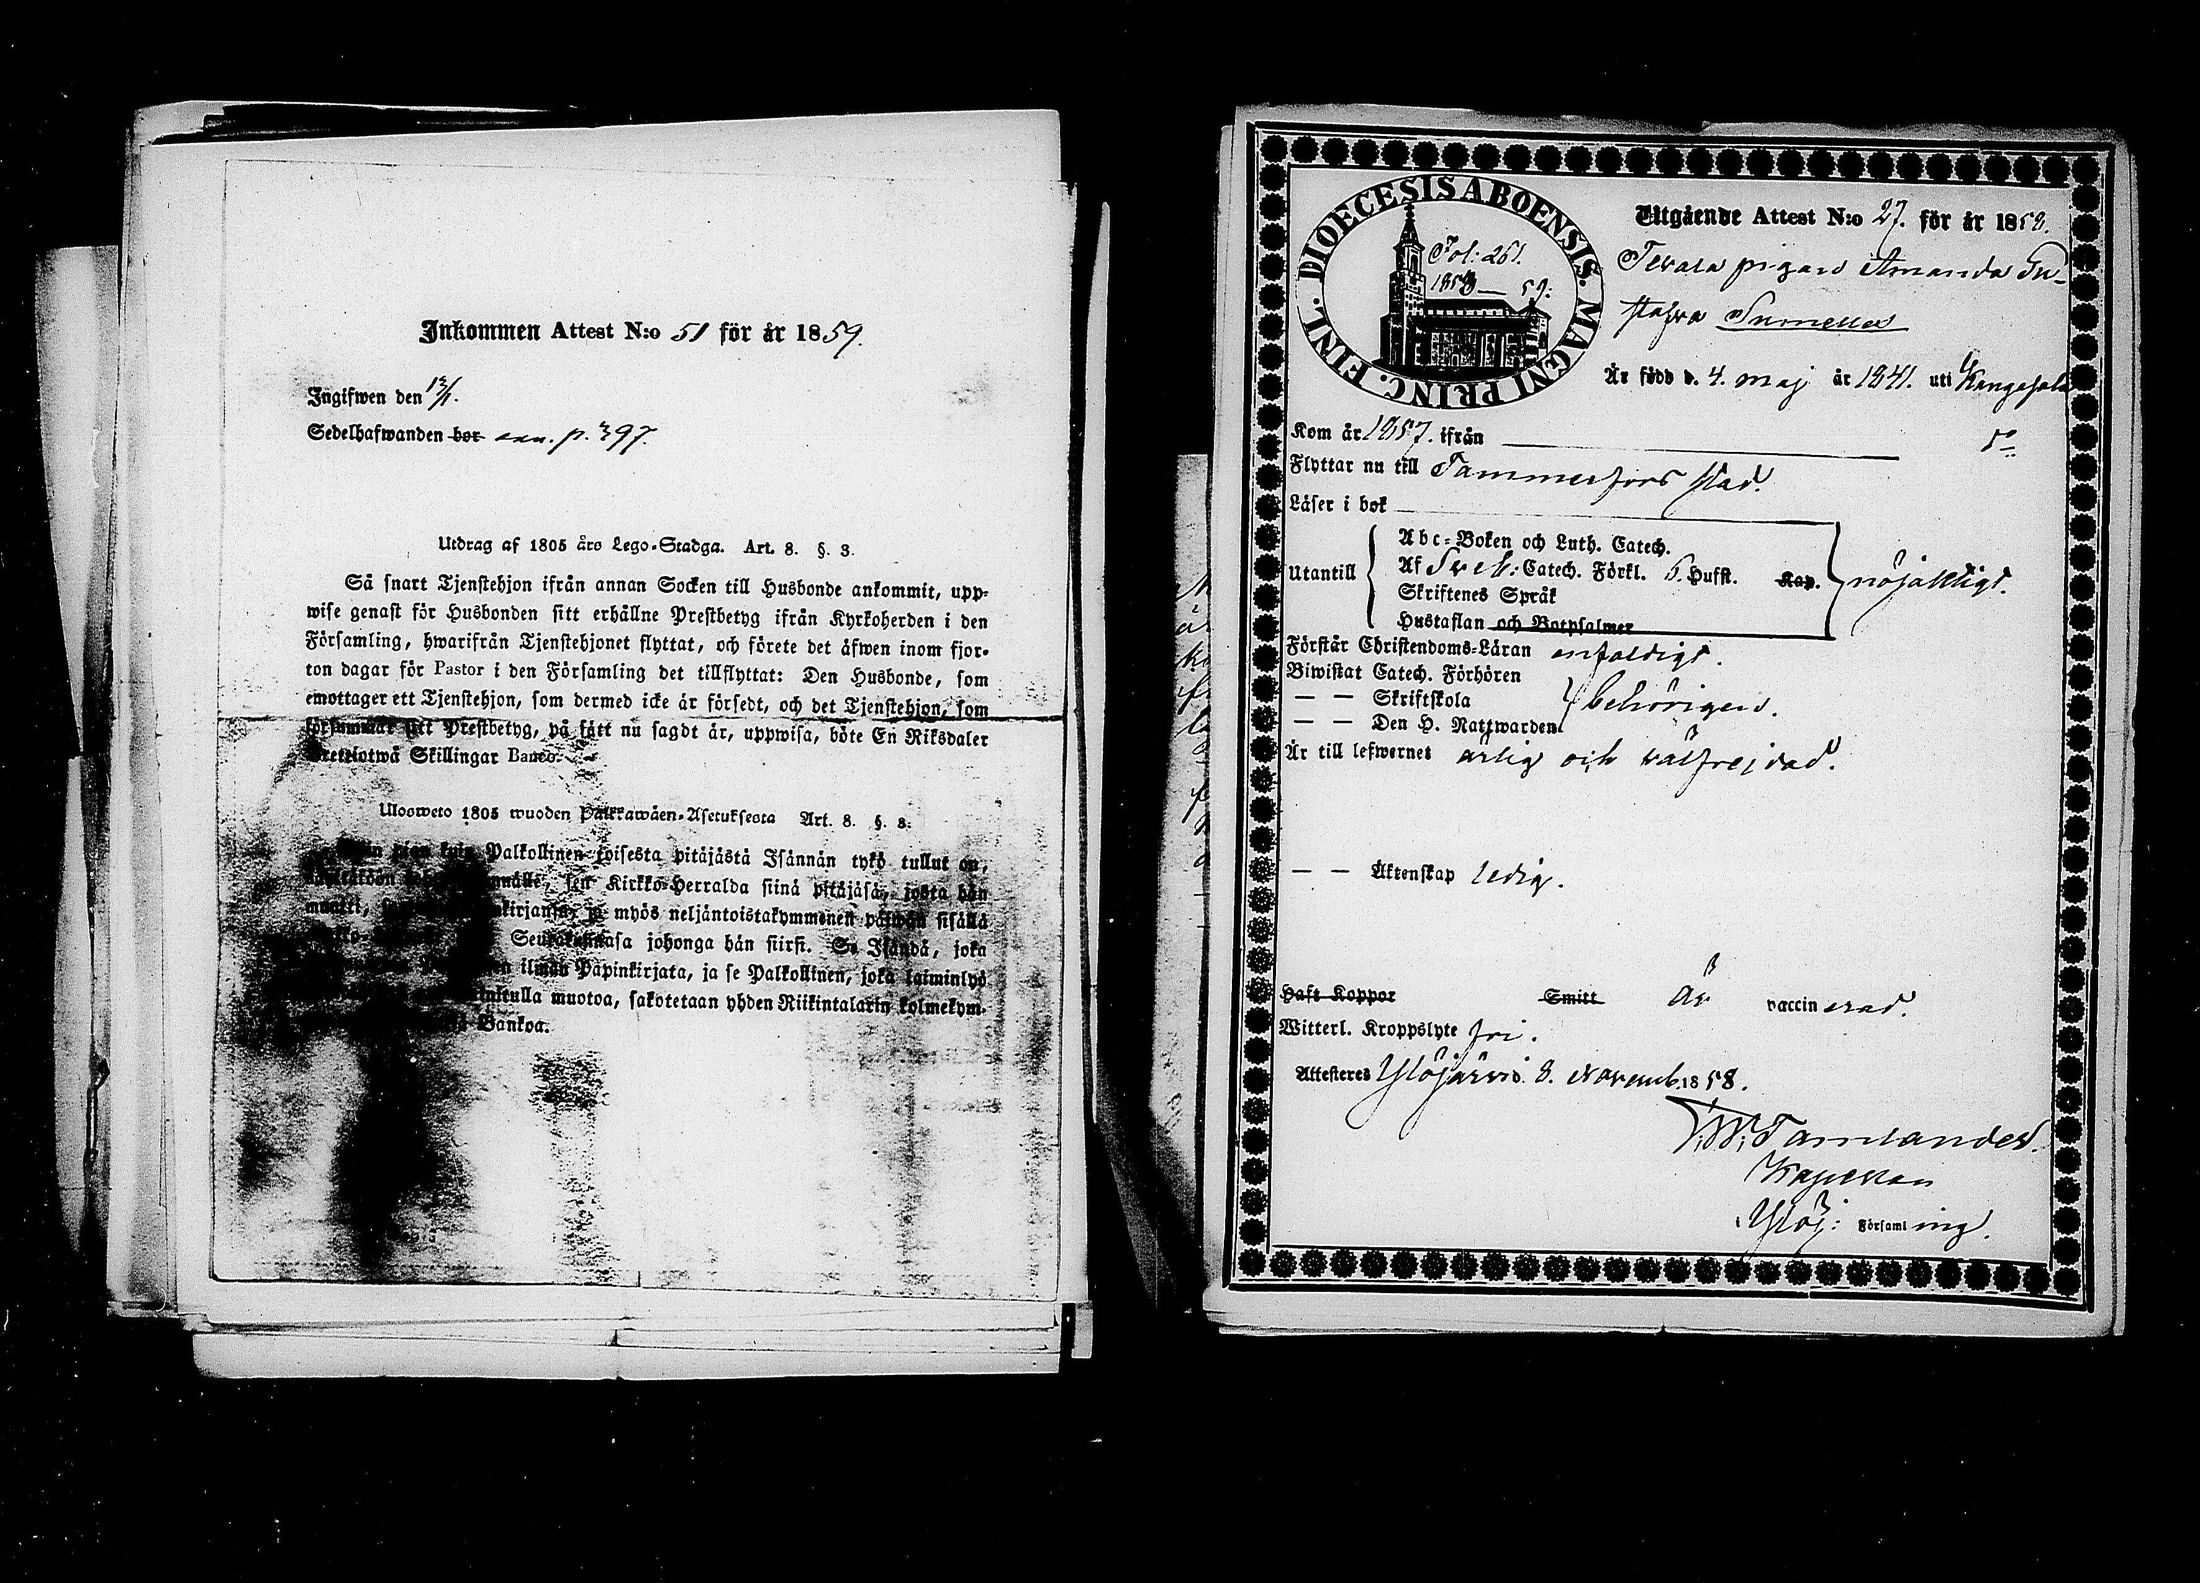 Inkommen Attest N:o 51 för år 1859.
Ingifwen den 13/1.
Sedelhafwanden bor ann. p. 397.
Utdrag af 1805 års Lego-Stadga. Art. 8. §. 3.
Så snart Tjenstehjon ifrån annan Socken till Husbonde ankommit, upp-
wise genast för Husbonden sitt erhållne Prestbetyg ifrån Kyrkoherden i den
Församling, hwarifrån Tjenstehjonet flyttat, och förete det äfwen inom fjor-
ton dagar för Pastor i den Församling det tillflyttat: Den Husbonde, som
emottager ett Tjenstehjon, som dermed icke är försedt, och det Tjenstehjon, som
försummar sitt Prestbetyg, på sätt nu sagdt är, uppwisa, böte En Riksdaler
Trettiotwå Skillingar Banco.
Ulosweto 1805 wuoden Palkkawäen-Asetuksesta Art. 8. §. 3.
kuin Palkollinen toisesta pitäjästä Isännän tykö tullut on,
sen Kirkko-Herralda siinä pitäjäsä, josta hän
muutti, ja myös neljäntoistakymmenen päiwän sisällä
Seurakunnasa johonga hän siirsi. Se Isändä, joka
ilman Papinkirjata, ja se Palkollinen, joka laiminlyö
muotoa, sakotetaan yhden Riikintalarin kolmekym-
Bankoa.
DIOECESIS ABOENSIS. MAGNI PRINC. FINL.
Fol: 261.
1858 — 59:
Utgående Attest N:o 27. för år 1858.
pigan Amanda Gu-
stafva
Är född d. 4. maj år 1841. uti Kangasala
Kom år 1857. ifrån
Flyttar nu till Tammerfors stad.
Läser i bok
Utantill
Abc-Boken och Luth. Catech.
Af Sveb: Catech. Förkl. 5. Hufst. Kap. nöjaktligt.
Skriftenes Språk
Hustaflan och Botpsalmer
Förstår Christendoms-Läran enfaldigt.
Biwistat Catech. Förhören
— — Skriftskola behörigen.
— — Den H. Nattwarden
Är till lefwernet ärlig och välfrejdad.
— — Äktenskap ledig.
Haft Koppor Smitt är vaccinerad.
Witterl. Kroppslyte fri.
Attesteras Ylöjärvi d. 8. Novemb. 1858.
Tamlander.
Kapellan
i Ylöj: Församling.